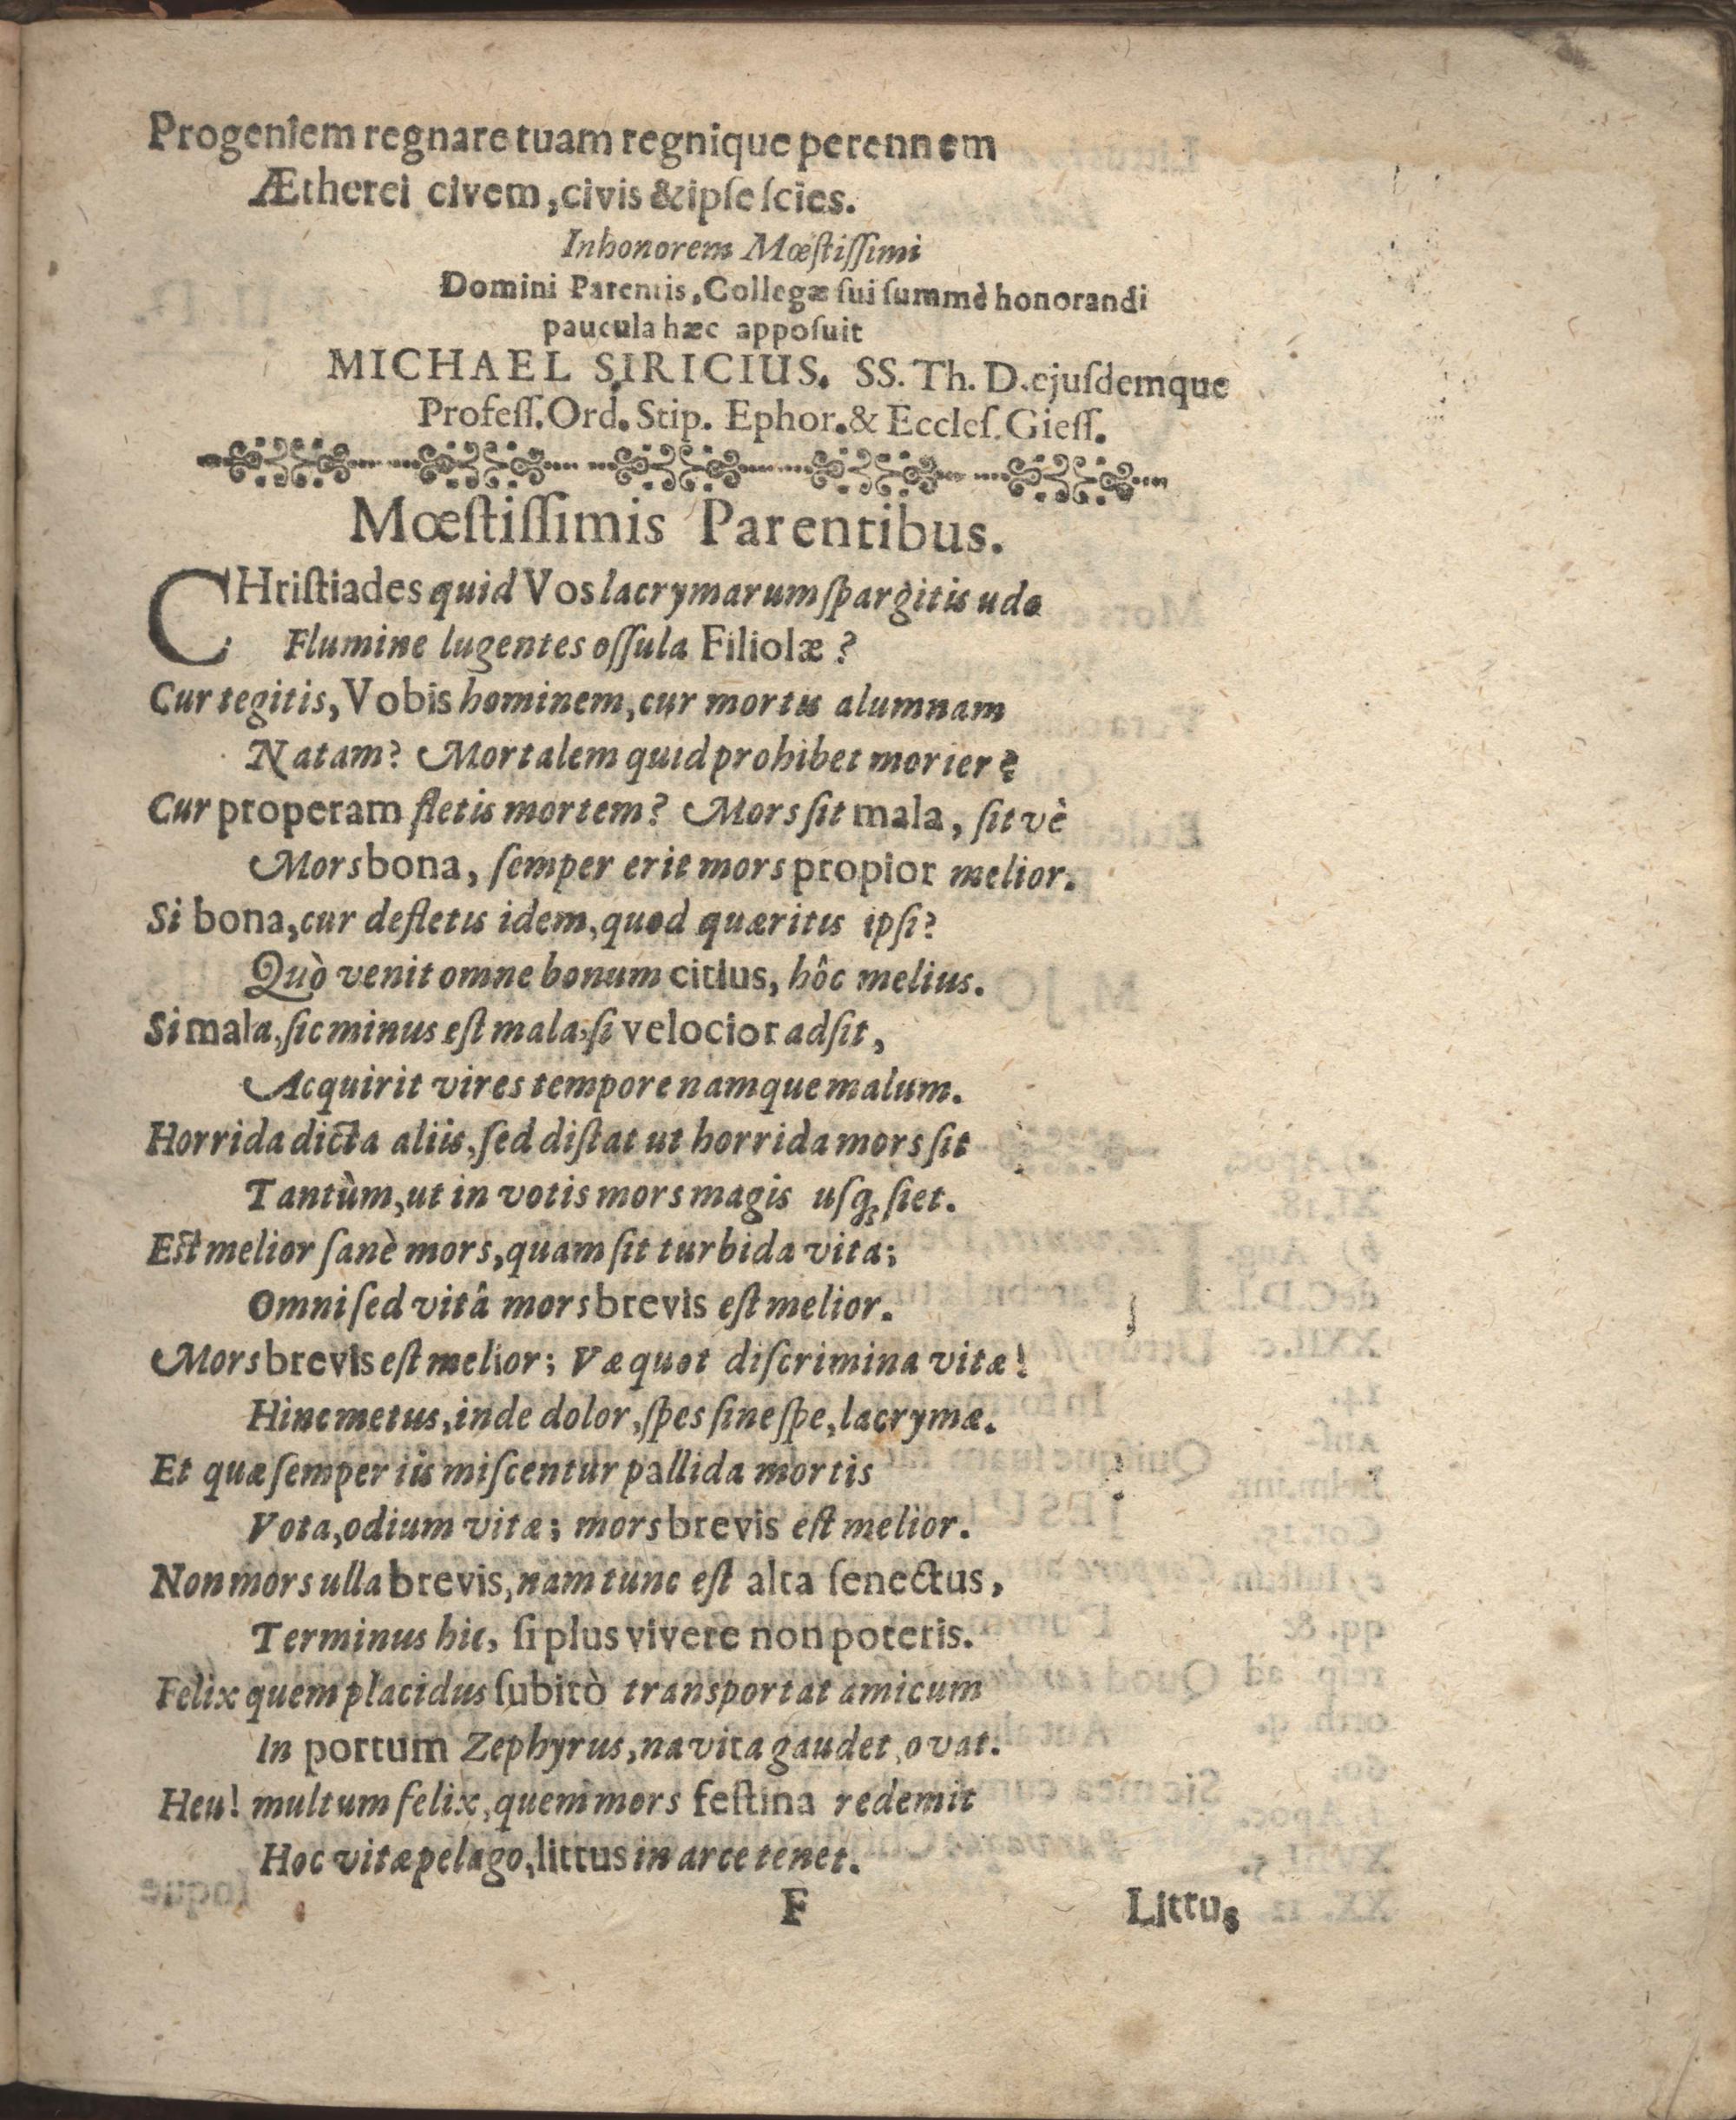 Progeniem regnare tuam regnique perennem
Ætherei civem, civis & ipſe ſcies.
In honorem Mœſtiſſimi
Domini Parentis, Collegæ ſui ſummè honorandi
paucula hæc appoſuit
MICHAEL SIRICIUS. SS. Th. D. ejuſdemque
Profeſſ. Ord. Stip. Ephor. & Eccleſ. Gieſſ.
Mœſtiſſimis Parentibus.
CHriſtiades quid Vos lacrymarum ſpargitis udo
Flumine lugentes oſſula Filiolæ?
Cur tegitis, Vobis hominem, cur mortis alumnam
Natam? Mortalem quid prohibet morier?
Cur properam fletis mortem? Mors ſit mala, ſit vè
Mors bona, ſemper erit mors propior melior.
Si bona, cur defletis idem, quod quæritis ipſi?
Quò venit omne bonum citius, hôc melius.
Si mala, ſic minus eſt mala, ſi velocior adſit,
Acquirit vires tempore namque malum.
Horrida dicta aliis, ſed diſtat ut horrida mors ſit
Tantùm, ut in votis mors magis uſq; ſiet.
Eſt melior ſanè mors, quam ſit turbida vita;
Omni ſed vitâ mors brevis eſt melior.
Mors brevis eſt melior; Væ quot diſcrimina vitæ!
Hinc metus, inde dolor, ſpes ſine ſpe, lacrymæ.
Et quæ ſemper iis miſcentur pallida mortis
Vota, odium vitæ; mors brevis eſt melior.
Non mors ulla brevis, nam tunc eſt alta ſenectus,
Terminus hic, ſi plus vivere non poteris.
Felix quem placidus ſubitò transportat amicum
In portum Zephyrus, navita gaudet, ovat.
Heu! multum felix, quem mors feſtina redemit
Hoc vitæ pelago, littus in arce tenet.
F Littus